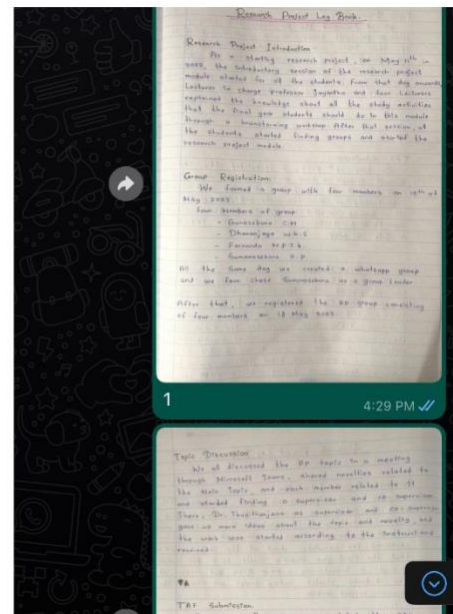 Research Project Log Book.
Research Project Introduction
As a starting research project, on May 11th in
2023, the introductory session of the research project
module started for all the students. From that day onwards,
Lecturer in charge professor Jayantha and four Lecturers
explained the knowledge about all the study activities
that the final year students should do in this module
through a brainstorming workshop. After that session, all
the students started finding groups and started the
research project module.
Group Registration
We formed a group with four members on of
May 2023
Four members of group
- Gunasekara C.M
- Dhananjaya
- Fernando
- Gunanasekara
At the same day we created a whatsapp group
and we four chose as a group leader
After that, we registered the RP group consisting
of four members on 18 May 2023
1
4:29 PM
Topic Discussion
We all discussed the RP topic in a meeting
through Microsoft Teams, shared novelties related to
the Main Topic, and each member related to it
and started finding a supervisor and co-supervisor.
There, Dr. as supervisor and co-supervisor
gave us more ideas about the topic and novelty, and
the work was started according to the instructions
received.
TAF Submission